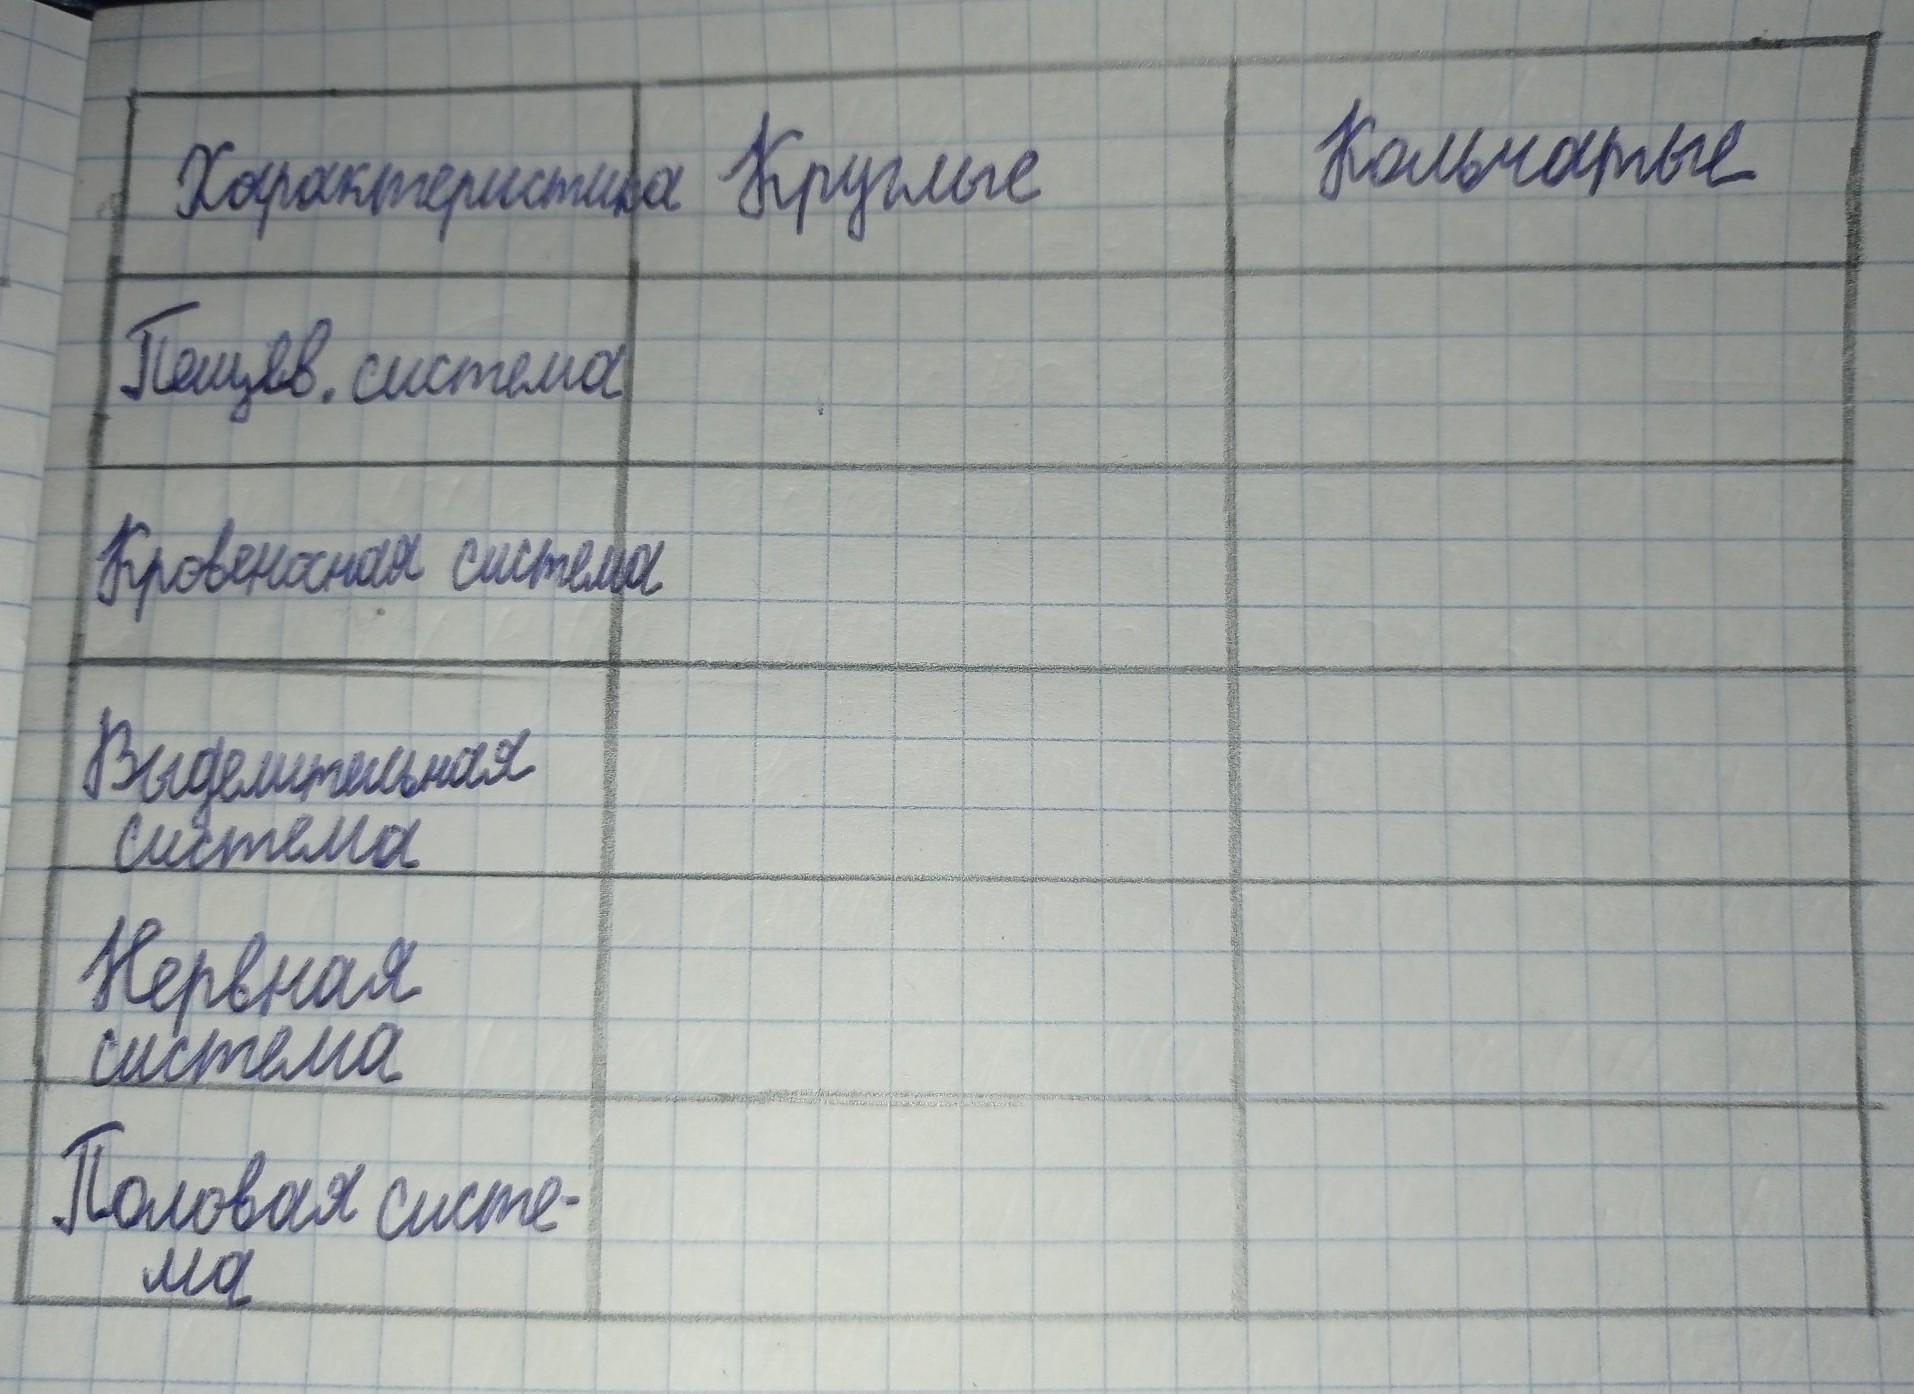 Характеристика Круглые Кольчатые
Пещев. система
Кровеносная система
Выделительная
система
Нервная
система
Половая систе-
ма